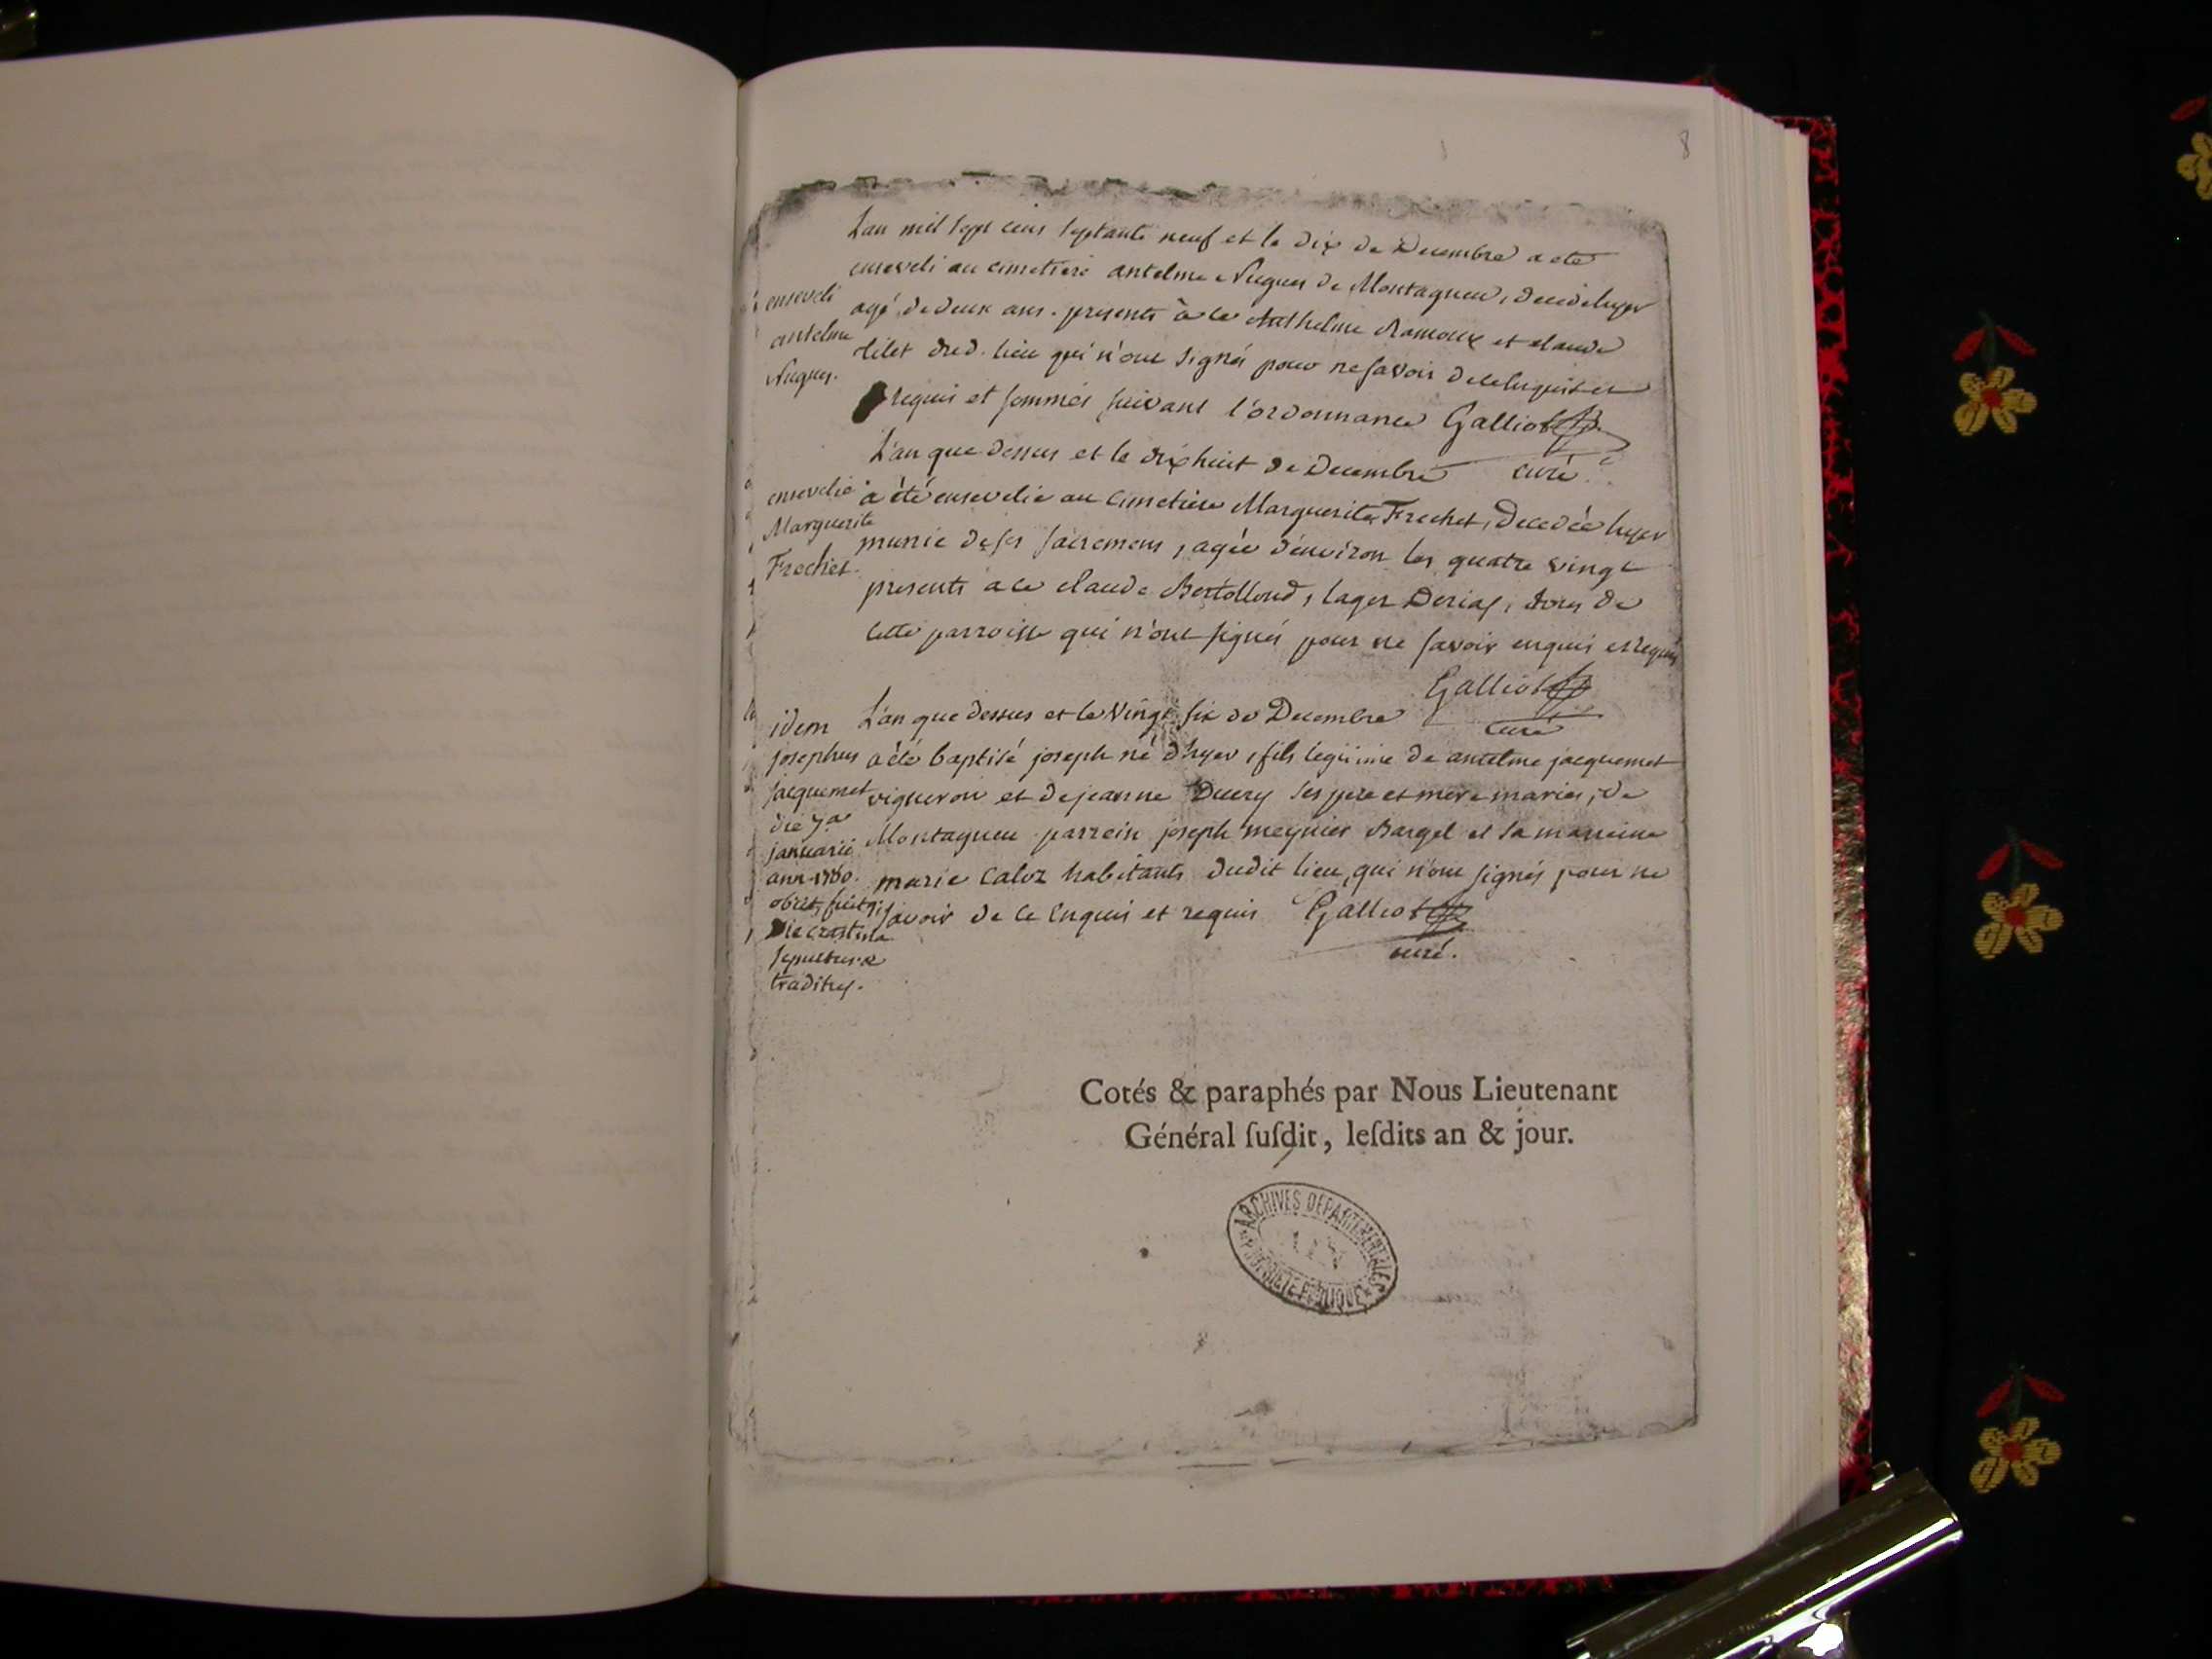 8
L'an mil sept cens septante neuf et le dix de Decembre a eté
enseveli au cimetiere antelme Nugues de Montagneu, decedé hyer
agé de deux ans. presents à ce Anthelme Ramoux et claude
tilet dud. lieu qui n'ont signés pour ne savoir de ce enquis et
requis et sommés suivant l'ordonnance Galliot
curé.
enseveli
antelme
Nugues.
L'an que dessus et le dix huit de Decembre
a été ensevelie au cimetiere Marguerite Frechet, Decedée hyer
munie de ses sacremens, agée d'environ les quatre vingt
presents a ce claude Bertolloud, Derias, tous de
cette parroisse qui n'ont signés pour ne savoir enquis et requis
Galliot
curé
ensevelie
Marguerite
Frechet.
L'an que dessus et le vingt six de Decembre
a été baptisé joseph né d'hyer, fils legitime de antelme jacquemet
vigneron et de jeanne Duery ses pere et mere mariés, de
Montagneu parrein joseph meynier Bargel et sa marreine
marie Caloz habitants dudit lieu, qui n'ont signés pour ne
savoir de ce enquis et requis Galliot
curé.
idem
josephus
jacquemet
die 7a
januarii
ann. 1780.
obiit, fuitq;
Die crastina
sepulturæ
traditus.
Cotés & paraphés par Nous Lieutenant
Général ſuſdit, leſdits an & jour.
ARCHIVES DEPARTEMENTALES
PROPRIETE PUBLIQUE